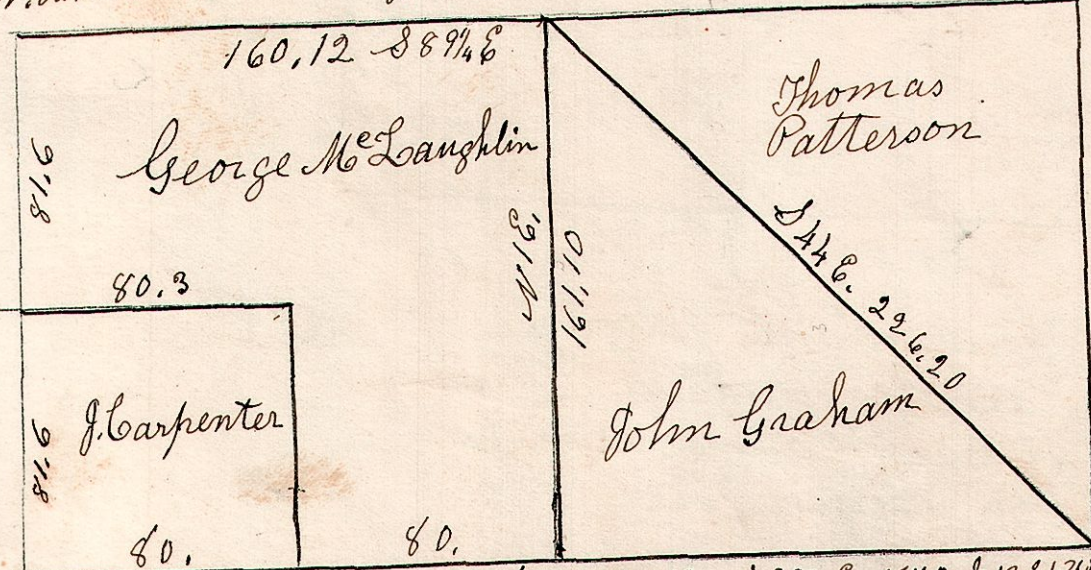 160,12 S 89¼ E
Thomas
Patterson
George McLaughlin
81.6
N 1 E.
161,10
S 44 E. 226.20
80.3
J. Carpenter
John Graham
81.6
80.
80.